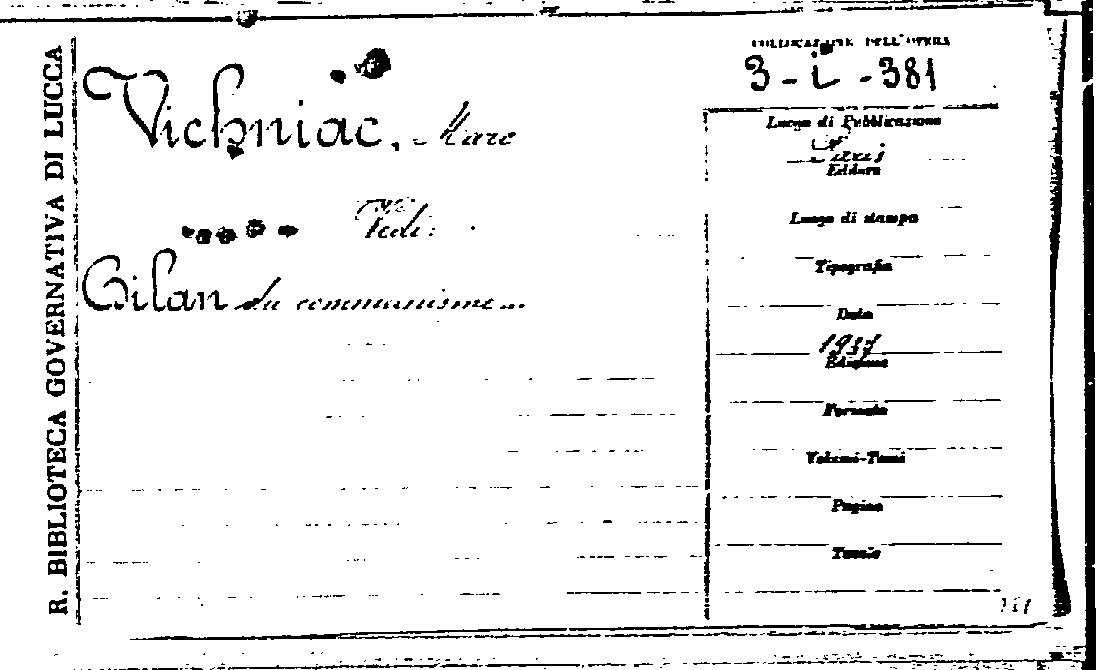 R. BIBLIOTECA GOVERNATIVA DI LUCCA
COLLOCAZIONE DELL'OPERA
3-i-381
Vichniac, Marc
Vedi:
Bilan du communisme...
Luogo di Pubblicazione
Parigi
Editore
Luogo di stampa
Tipografia
Data
1937
Edizione
Formato
Volumi-Tomi
Pagine
Tavole